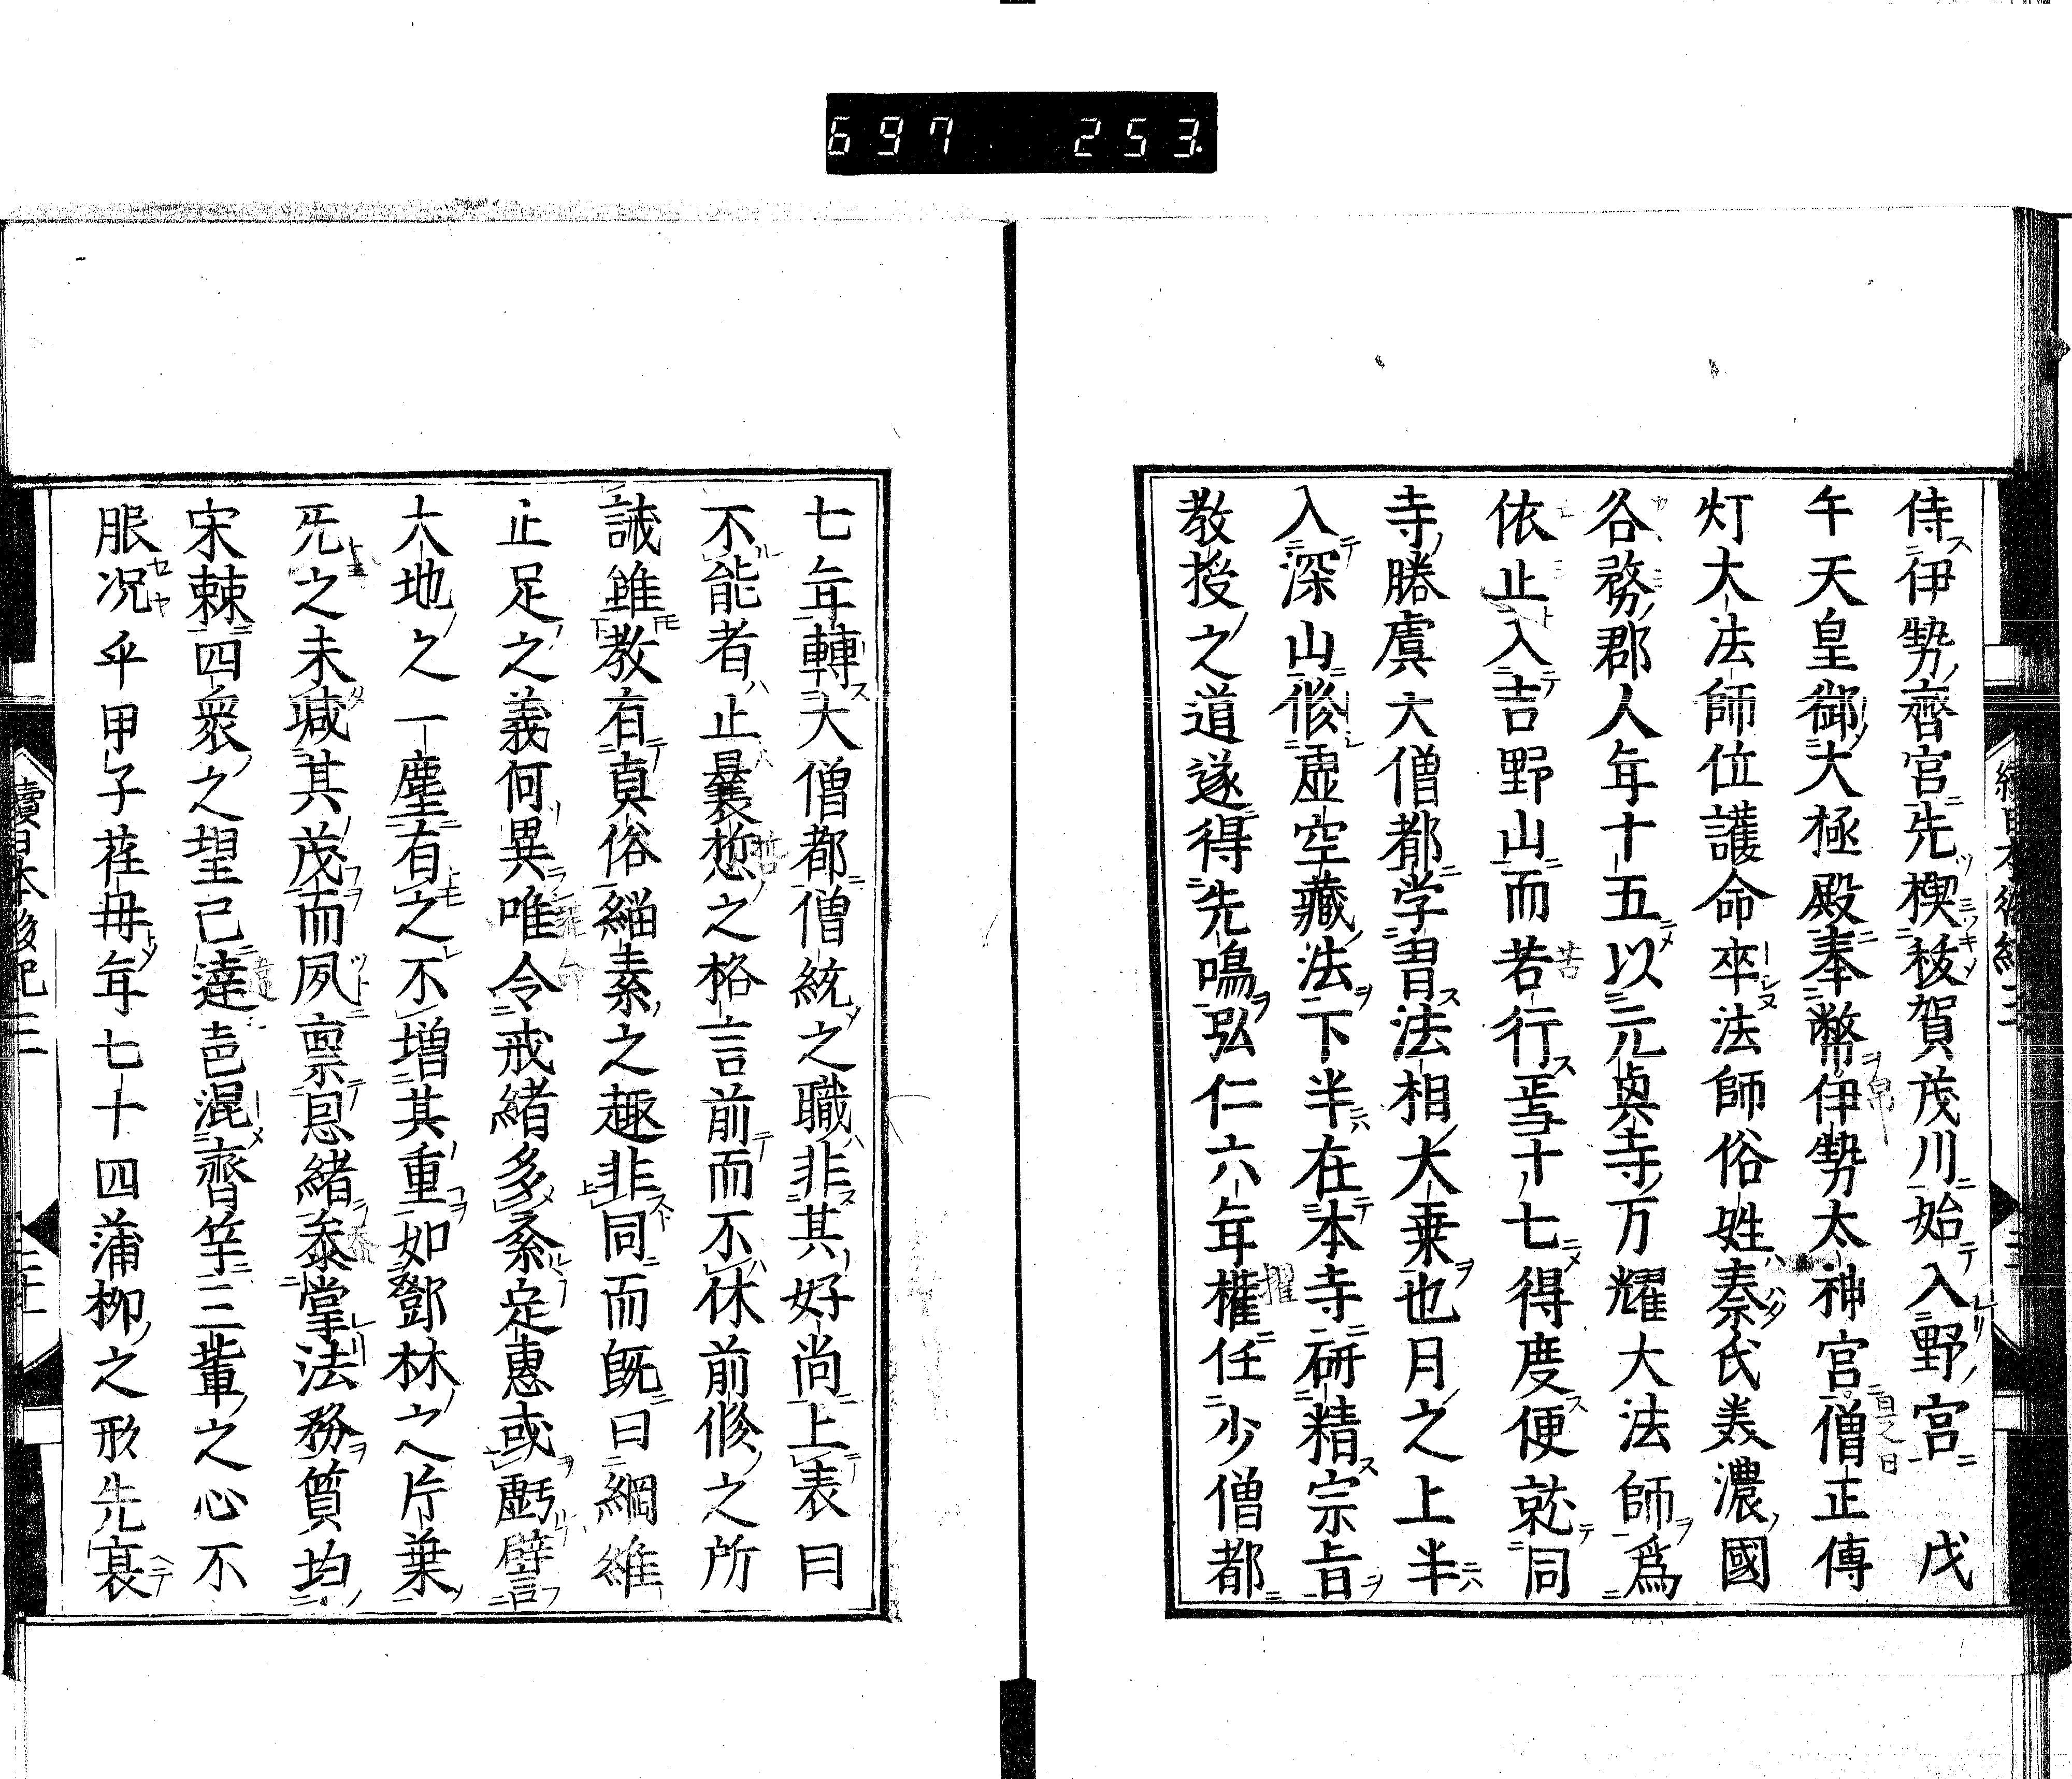 697 253
侍伊勢齊宮先楔秡賀茂川始入野宮 戊
午天皇御大極殿奉幣伊勢太神宮僧正傳
灯大法師位護命卒法師俗姓秦氏美濃國
各務郡人年十五以元興寺万耀大法師爲
依止入吉野山而若行焉十七得度便就同
寺勝虞大僧都学習法相大乗也月之上半
入深山修虚空藏法下半在本寺研精宗旨
教授之道遂得先鳴弘仁六年權任少僧都
七年轉大僧都僧統之職非其好尚上表曰
不能者止曩悊之格言前而不休前修之所
誡雖教有真俗緇素之趣非同而既曰綱維
止足之義何異唯令戒緒多紊定惠或虧譬
大地之一塵有之不増其重如鄧林之片葉
旡之未喊其茂而夙禀怱緒忝掌法務質均
宋棘四衆之望已逹邑混齊竽三輩之心不
服况乎甲子荏苒年七十四蒲柳之形先衰
續日本後紀三